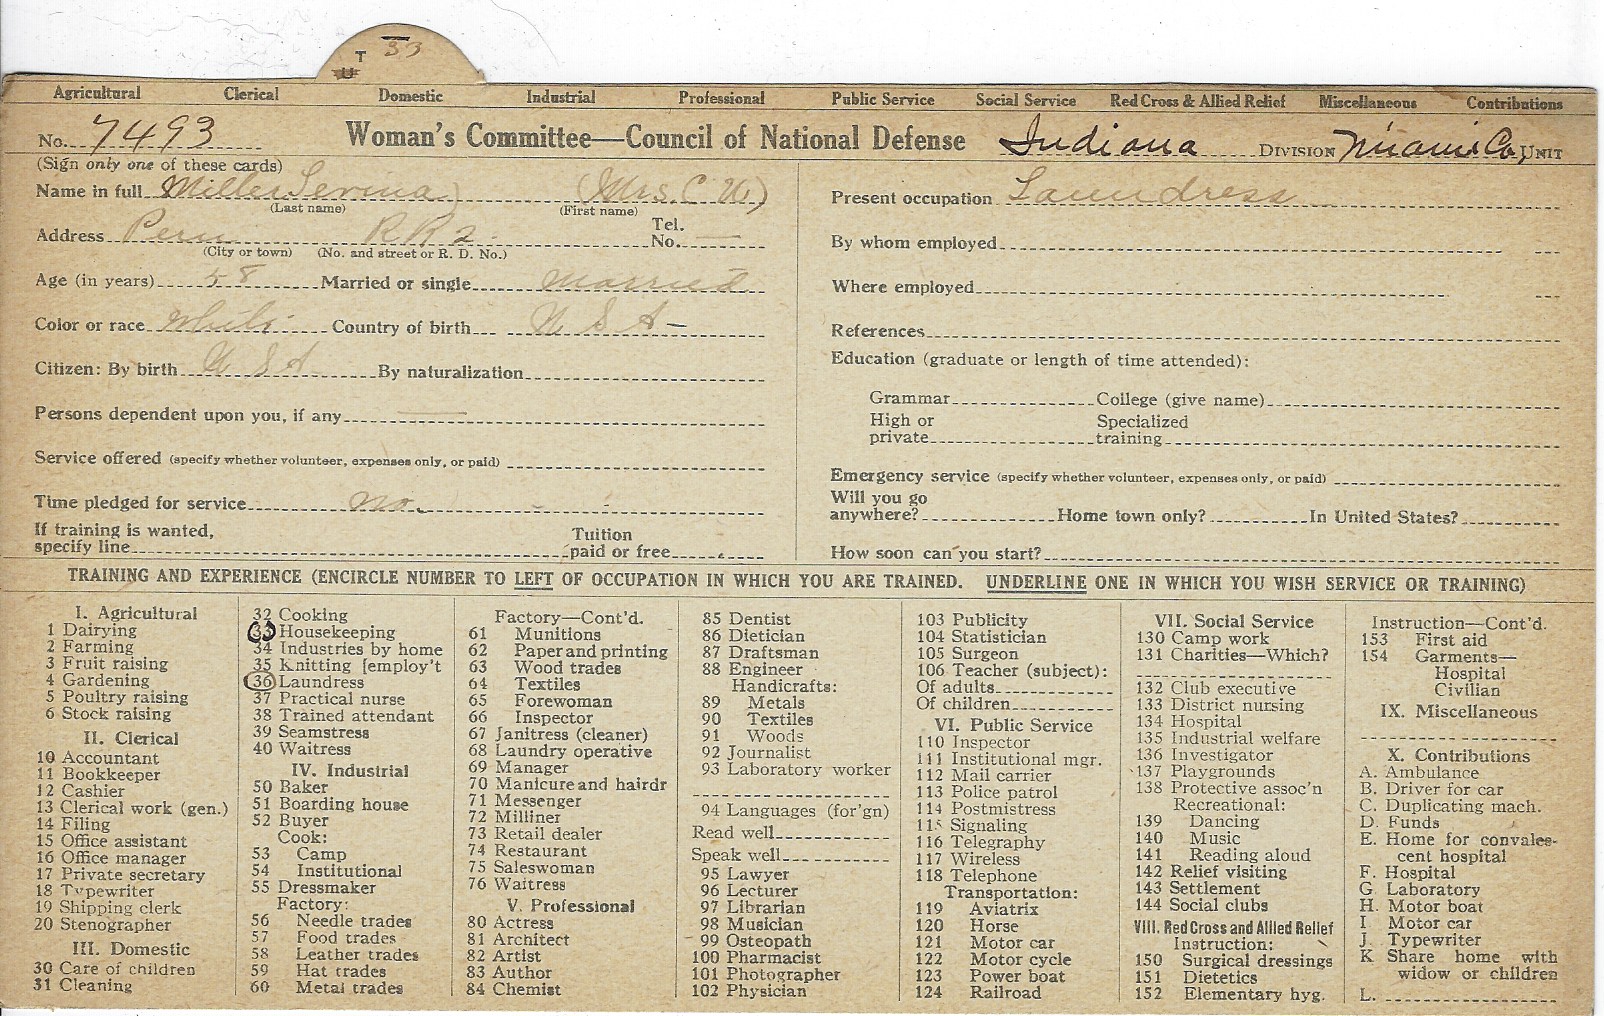 T 33
U
Agricultural Clerical Domestic Industrial Professional Public Service Social Service Red Cross & Allied Relief Miscellaneous Contributions
No. 7493 Woman's Committee—Council of National Defense Indiana DIVISION Miami Co, UNIT
(Sign only one of these cards)
Name in full Miller (Mrs. C W)
(Last name) (First name)
Address Peru R R 2. Tel. No. —
(City or town) (No. and street or R. D. No.)
Age (in years) 58 Married or single married
Color or race white Country of birth U S A —
Citizen: By birth U S A By naturalization
Persons dependent upon you, if any —
Service offered (specify whether volunteer, expenses only, or paid)
Time pledged for service no.
If training is wanted, specify line Tuition paid or free
Present occupation Laundress
By whom employed
Where employed
References
Education (graduate or length of time attended):
Grammar College (give name)
High or private Specialized training
Emergency service (specify whether volunteer, expenses only, or paid)
Will you go anywhere? Home town only? In United States?
How soon can you start?
TRAINING AND EXPERIENCE (ENCIRCLE NUMBER TO LEFT OF OCCUPATION IN WHICH YOU ARE TRAINED. UNDERLINE ONE IN WHICH YOU WISH SERVICE OR TRAINING)
I. Agricultural
1 Dairying
2 Farming
3 Fruit raising
4 Gardening
5 Poultry raising
6 Stock raising
II. Clerical
10 Accountant
11 Bookkeeper
12 Cashier
13 Clerical work (gen.)
14 Filing
15 Office assistant
16 Office manager
17 Private secretary
18 Typewriter
19 Shipping clerk
20 Stenographer
III. Domestic
30 Care of children
31 Cleaning
32 Cooking
33 Housekeeping
34 Industries by home
35 Knitting [employ't
36 Laundress
37 Practical nurse
38 Trained attendant
39 Seamstress
40 Waitress
IV. Industrial
50 Baker
51 Boarding house
52 Buyer
Cook:
53 Camp
54 Institutional
55 Dressmaker
Factory:
56 Needle trades
57 Food trades
58 Leather trades
59 Hat trades
60 Metal trades
Factory—Cont'd.
61 Munitions
62 Paper and printing
63 Wood trades
64 Textiles
65 Forewoman
66 Inspector
67 Janitress (cleaner)
68 Laundry operative
69 Manager
70 Manicure and hairdr
71 Messenger
72 Milliner
73 Retail dealer
74 Restaurant
75 Saleswoman
76 Waitress
V. Professional
80 Actress
81 Architect
82 Artist
83 Author
84 Chemist
85 Dentist
86 Dietician
87 Draftsman
88 Engineer
Handicrafts:
89 Metals
90 Textiles
91 Woods
92 Journalist
93 Laboratory worker
94 Languages (for'gn)
Read well
Speak well
95 Lawyer
96 Lecturer
97 Librarian
98 Musician
99 Osteopath
100 Pharmacist
101 Photographer
102 Physician
103 Publicity
104 Statistician
105 Surgeon
106 Teacher (subject):
Of adults
Of children
VI. Public Service
110 Inspector
111 Institutional mgr.
112 Mail carrier
113 Police patrol
114 Postmistress
115 Signaling
116 Telegraphy
117 Wireless
118 Telephone
Transportation:
119 Aviatrix
120 Horse
121 Motor car
122 Motor cycle
123 Power boat
124 Railroad
VII. Social Service
130 Camp work
131 Charities—Which?
132 Club executive
133 District nursing
134 Hospital
135 Industrial welfare
136 Investigator
137 Playgrounds
138 Protective assoc'n
Recreational:
139 Dancing
140 Music
141 Reading aloud
142 Relief visiting
143 Settlement
144 Social clubs
VIII. Red Cross and Allied Relief
Instruction:
150 Surgical dressings
151 Dietetics
152 Elementary hyg.
Instruction—Cont'd.
153 First aid
154 Garments—
Hospital
Civilian
IX. Miscellaneous
X. Contributions
A. Ambulance
B. Driver for car
C. Duplicating mach.
D. Funds
E. Home for convales-
cent hospital
F. Hospital
G. Laboratory
H. Motor boat
I. Motor car
J. Typewriter
K Share home with
widow or children
L.